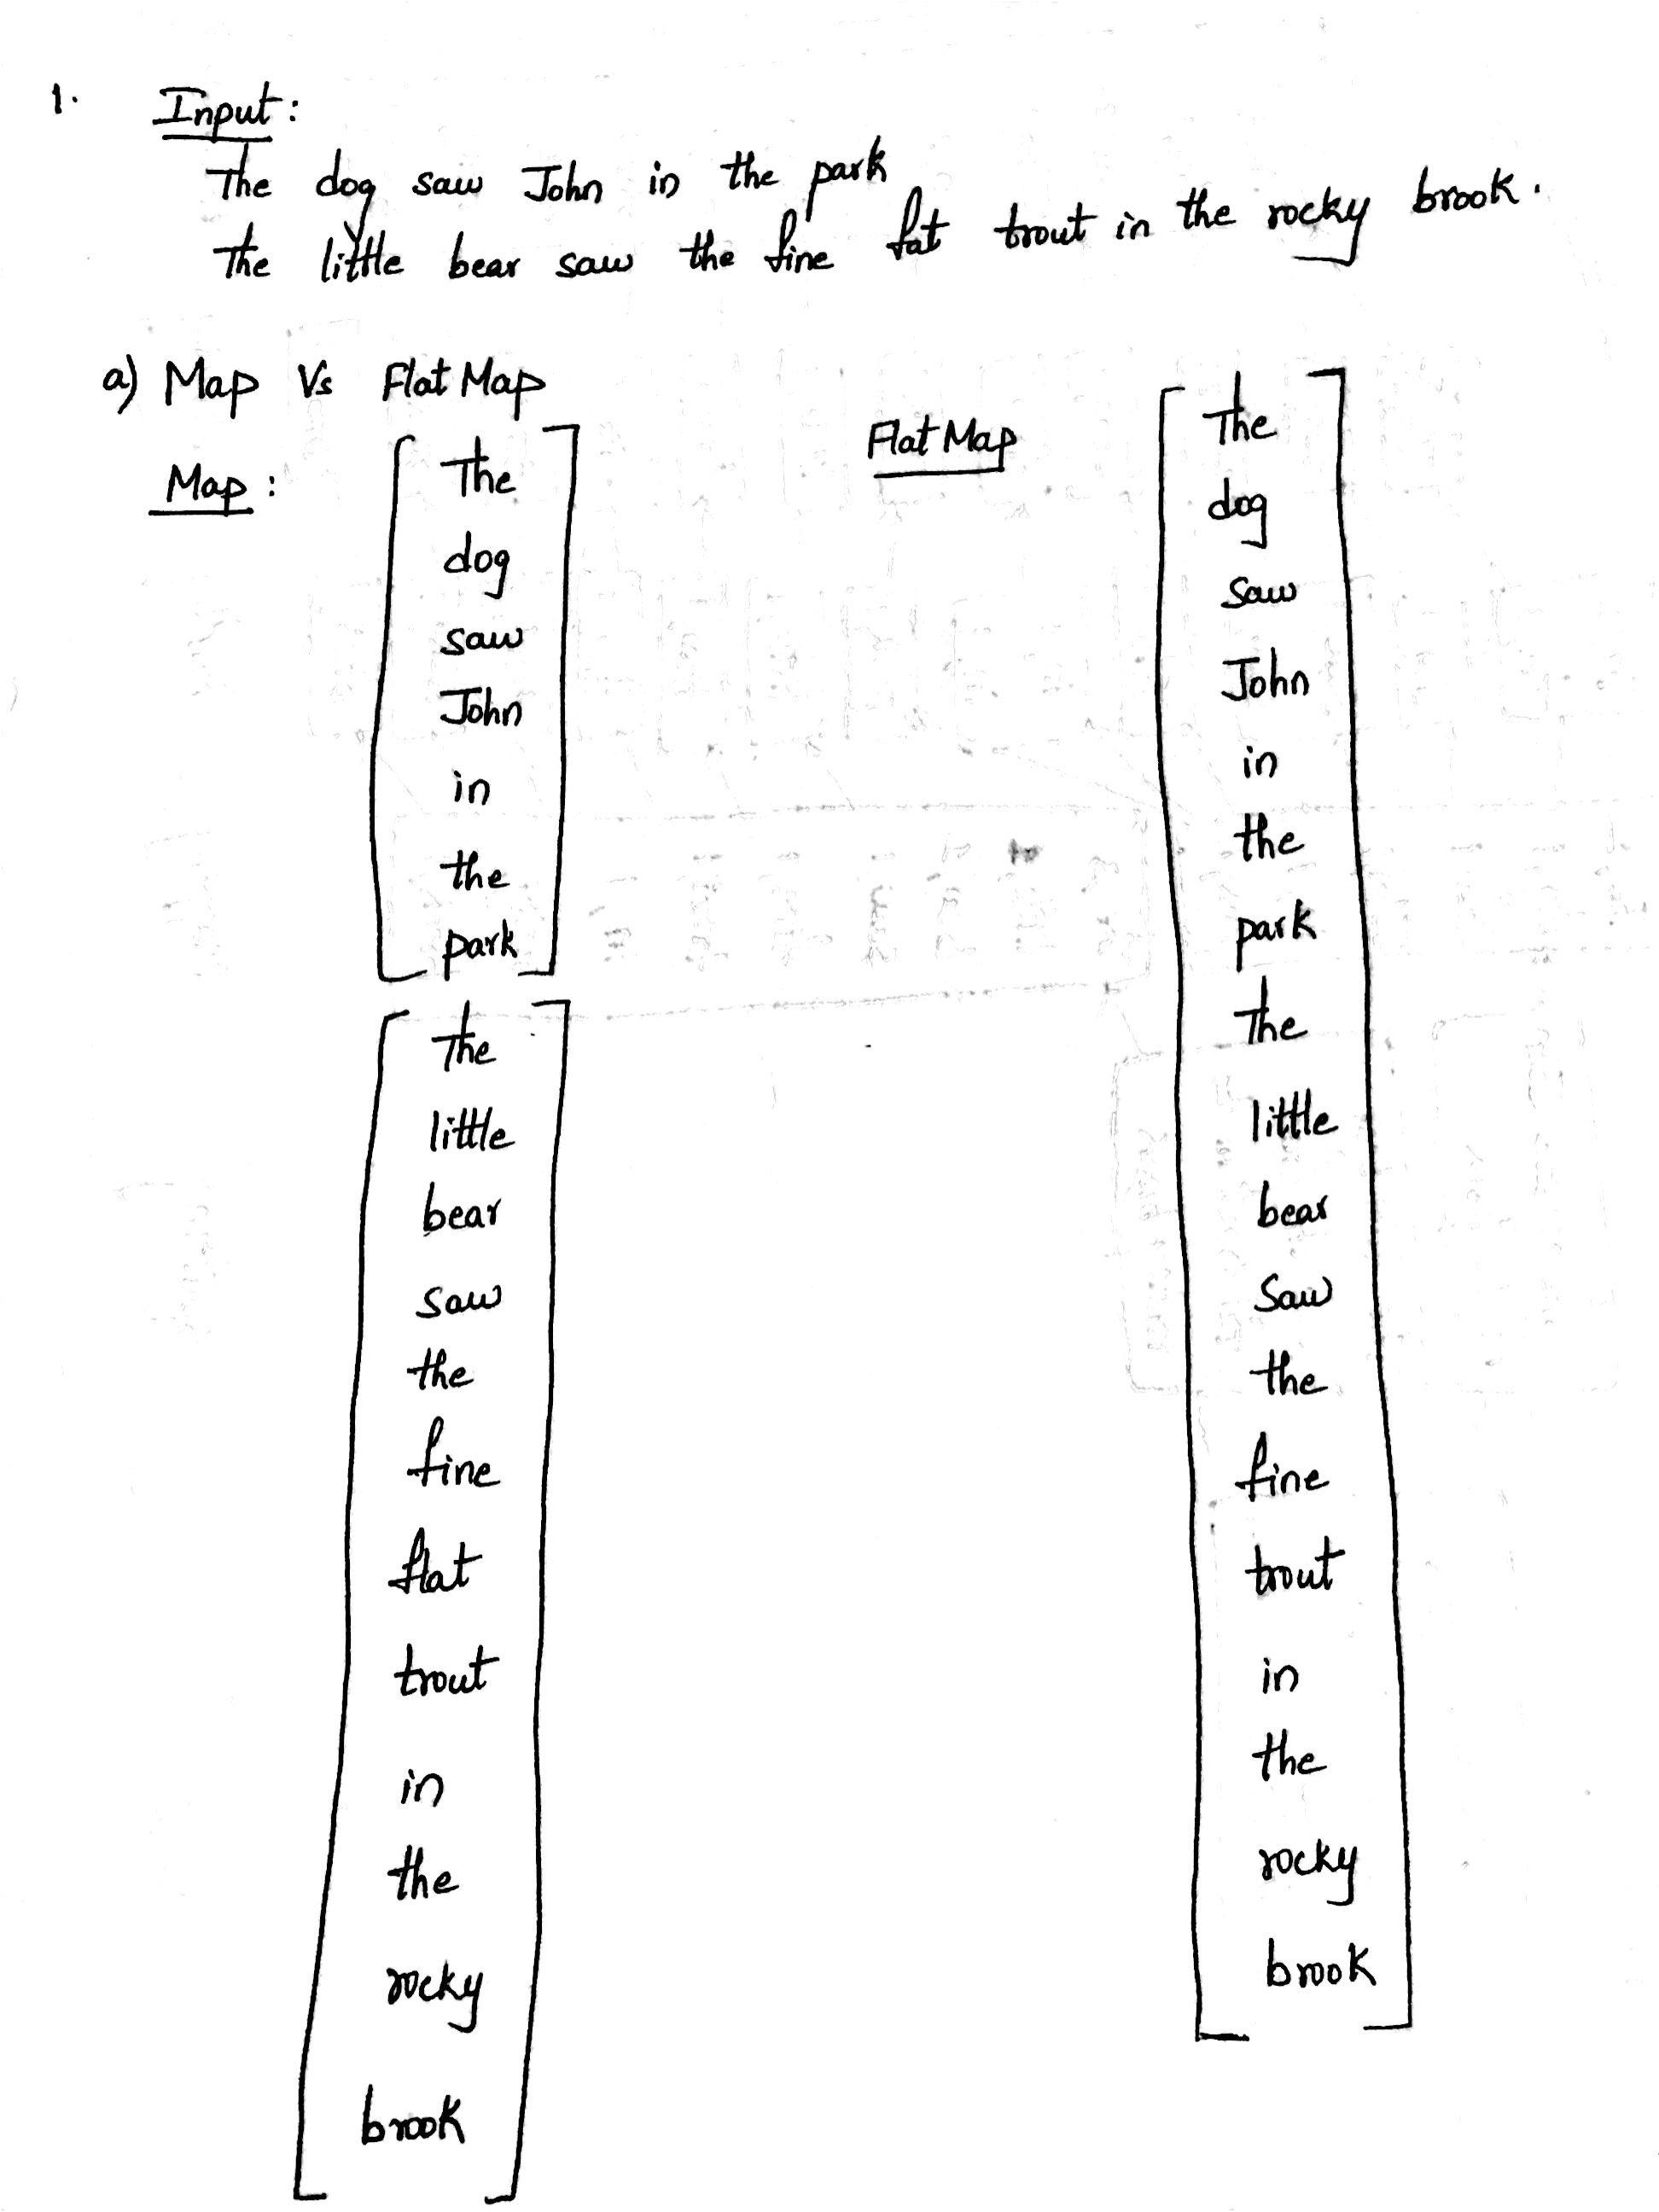 1. Input:
The dog saw John in the park
The little bear saw the fine fat trout in the rocky brook.
a) Map Vs Flat Map
Map:
The
dog
saw
John
in
the
park
The
little
bear
saw
the
fine
flat
trout
in
the
rocky
brook
Flat Map
The
dog
saw
John
in
the
park
The
little
bear
saw
the
fine
trout
in
the
rocky
brook